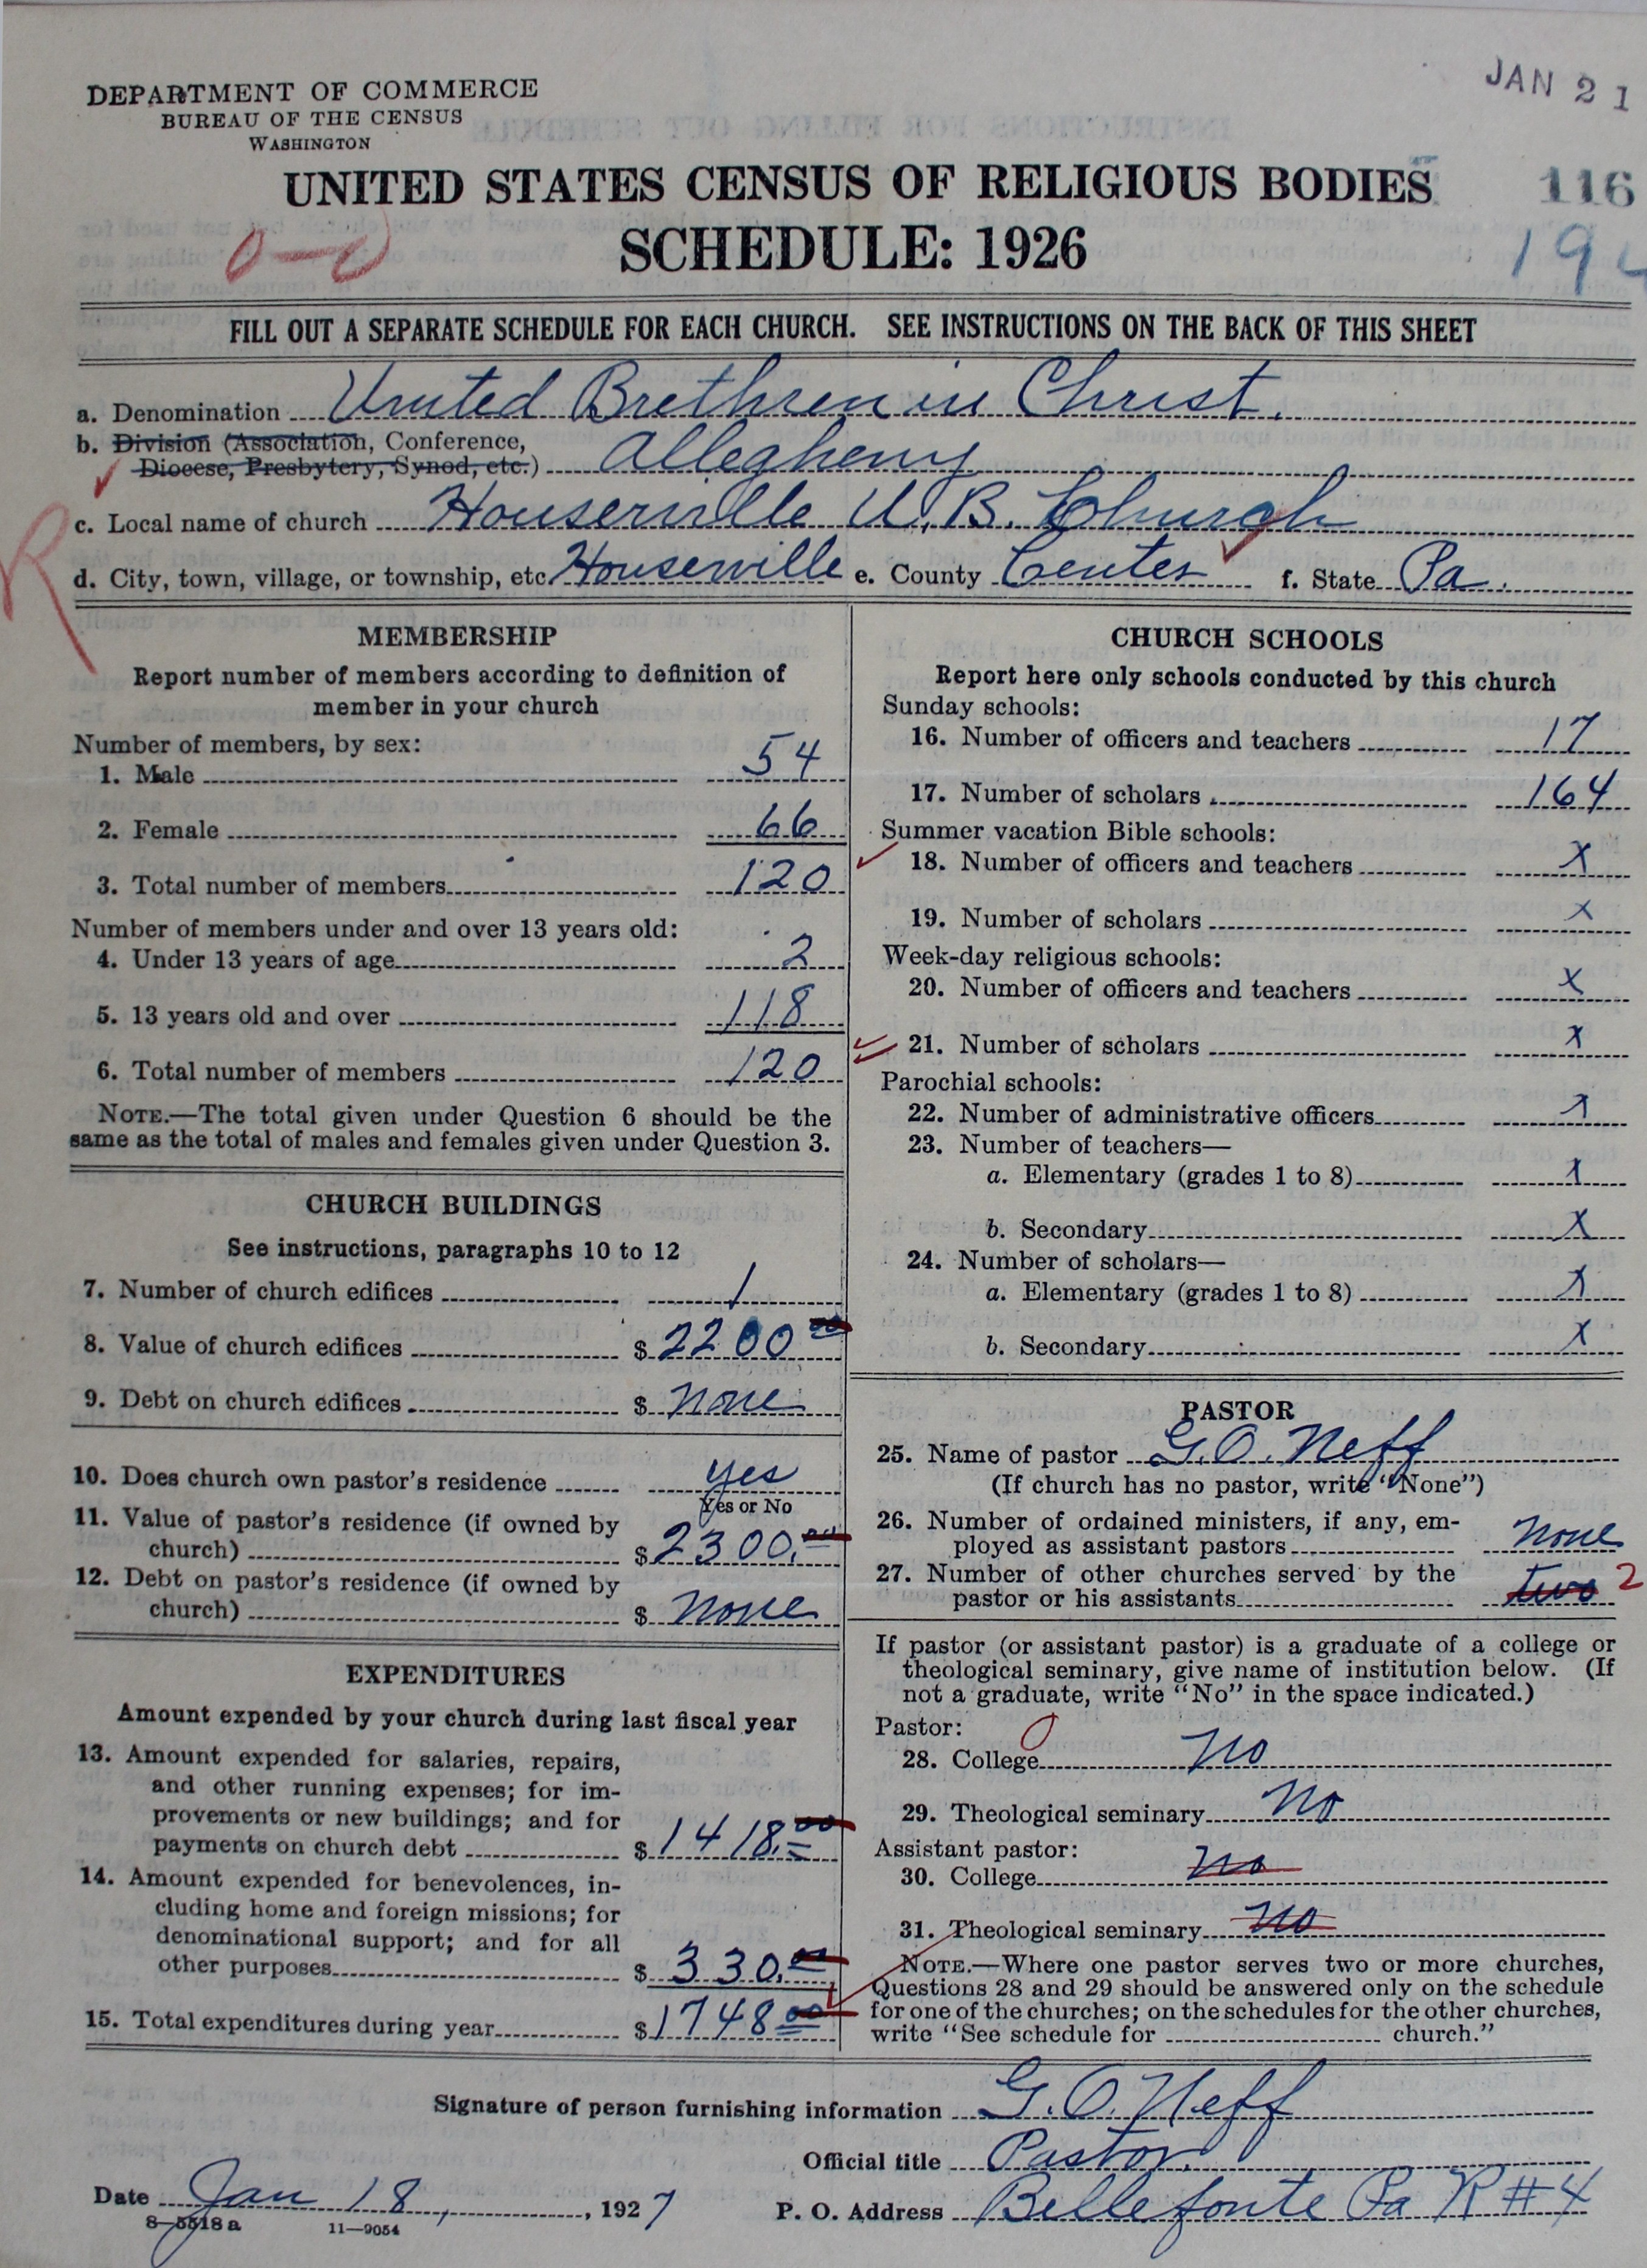 JAN 21
DEPARTMENT OF COMMERCE
BUREAU OF THE CENSUS
WASHINGTON
UNITED STATES CENSUS OF RELIGIOUS BODIES
116
SCHEDULE: 1926
194
0—0
FILL OUT A SEPARATE SCHEDULE FOR EACH CHURCH. SEE INSTRUCTIONS ON THE BACK OF THIS SHEET
a. Denomination United Brethren in Christ.
b. Division (Association, Conference,
Diocese, Presbytery, Synod, etc.) Allegheny
R
c. Local name of church Houserville U.B. Church
d. City, town, village, or township, etc Houserville e. County Center f. State Pa.
MEMBERSHIP
Report number of members according to definition of
member in your church
Number of members, by sex:
1. Male 54
2. Female 66
3. Total number of members 120
Number of members under and over 13 years old:
4. Under 13 years of age 2
5. 13 years old and over 118
6. Total number of members 120
NOTE.—The total given under Question 6 should be the
same as the total of males and females given under Question 3.
CHURCH BUILDINGS
See instructions, paragraphs 10 to 12
7. Number of church edifices 1
8. Value of church edifices $ 2200 00
9. Debt on church edifices $ none
10. Does church own pastor's residence yes
Yes or No
11. Value of pastor's residence (if owned by
church) $ 2300.00
12. Debt on pastor's residence (if owned by
church) $ none
EXPENDITURES
Amount expended by your church during last fiscal year
13. Amount expended for salaries, repairs,
and other running expenses; for im-
provements or new buildings; and for
payments on church debt $ 1418.00
14. Amount expended for benevolences, in-
cluding home and foreign missions; for
denominational support; and for all
other purposes $ 330.00
15. Total expenditures during year $ 1748 00
CHURCH SCHOOLS
Report here only schools conducted by this church
Sunday schools:
16. Number of officers and teachers 17
17. Number of scholars 164
Summer vacation Bible schools:
18. Number of officers and teachers x
19. Number of scholars x
Week-day religious schools:
20. Number of officers and teachers x
21. Number of scholars x
Parochial schools:
22. Number of administrative officers x
23. Number of teachers—
a. Elementary (grades 1 to 8) x
b. Secondary x
24. Number of scholars—
a. Elementary (grades 1 to 8) x
b. Secondary x
PASTOR
25. Name of pastor G.O. Neff
(If church has no pastor, write "None")
26. Number of ordained ministers, if any, em-
ployed as assistant pastors none
27. Number of other churches served by the
pastor or his assistants two 2
If pastor (or assistant pastor) is a graduate of a college or
theological seminary, give name of institution below. (If
not a graduate, write "No" in the space indicated.)
Pastor: 0
28. College no
29. Theological seminary no
Assistant pastor:
30. College no
31. Theological seminary no
NOTE.—Where one pastor serves two or more churches,
Questions 28 and 29 should be answered only on the schedule
for one of the churches; on the schedules for the other churches,
write "See schedule for church."
Signature of person furnishing information G.O. Neff
Official title Pastor.
Date Jan 18, 1927
P. O. Address Bellefonte Pa R#4
8—5518 a 11—9054